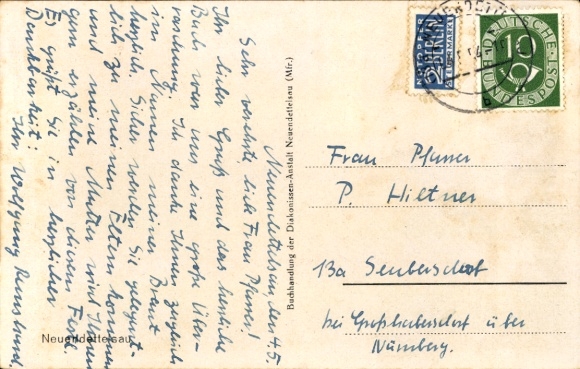 Neuendettelsau, den 4.5.
Sehr verehrte, liebe Frau Pfarrer!
Ihr lieber Gruß und das herrliche
Buch war uns eine große Über-
raschung. Ich danke Ihnen zugleich
im Namen meiner Braut
herzlich. Sicher werden Sie gelegent-
lich zu meinen Eltern kommen
und meine Mutter wird Ihnen
gern erzählen von diesem Fest.
Es grüßt Sie in herzlicher
Dankbarkeit:
Ihr Wolfgang
Neuendettelsau
Buchhandlung der Diakonissen-Anstalt Neuendettelsau (Mfr.)
NOTOPFER
2 BERLIN
STEUERMARKE
DEUTSCHE
BUNDESPOST
10
Frau Pfarrer
P. Hiltner
13a Seubersdorf
bei Großhabersdorf über
Nürnberg.